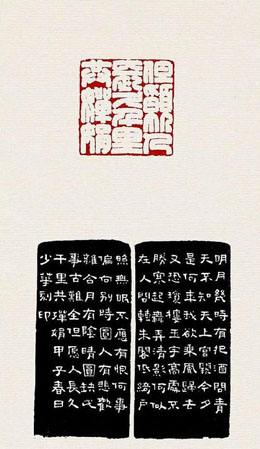 但願人
長久千里
共嬋娟
明月幾時有把酒問青
天不知天上宮闕今夕
是何年我欲乘風歸去
又恐瓊樓玉宇高處不
勝寒起舞弄清影何似
在人間轉朱閣低綺戶
照無眠不應有恨何事
偏向別時圓人有悲歡
離合月有陰晴圓缺此
事古難全但願人長久
千里共嬋娟甲子春日
少華刻印